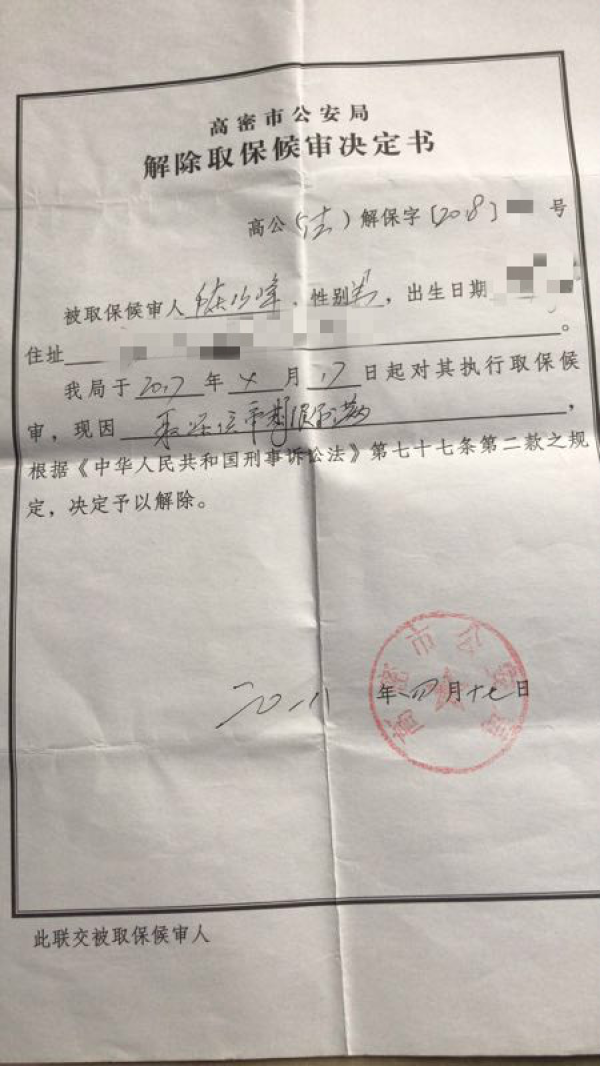 高密市公安局
解除取保候审决定书
高公（法）解保字〔2018〕 号
被取保候审人 峰，性别男，出生日期
住址 。
我局于2017年4月17日起对其执行取保候
审，现因取保候审期限届满，
根据《中华人民共和国刑事诉讼法》第七十七条第二款之规
定，决定予以解除。
高密市公安局
二〇一八年四月十七日
此联交被取保候审人